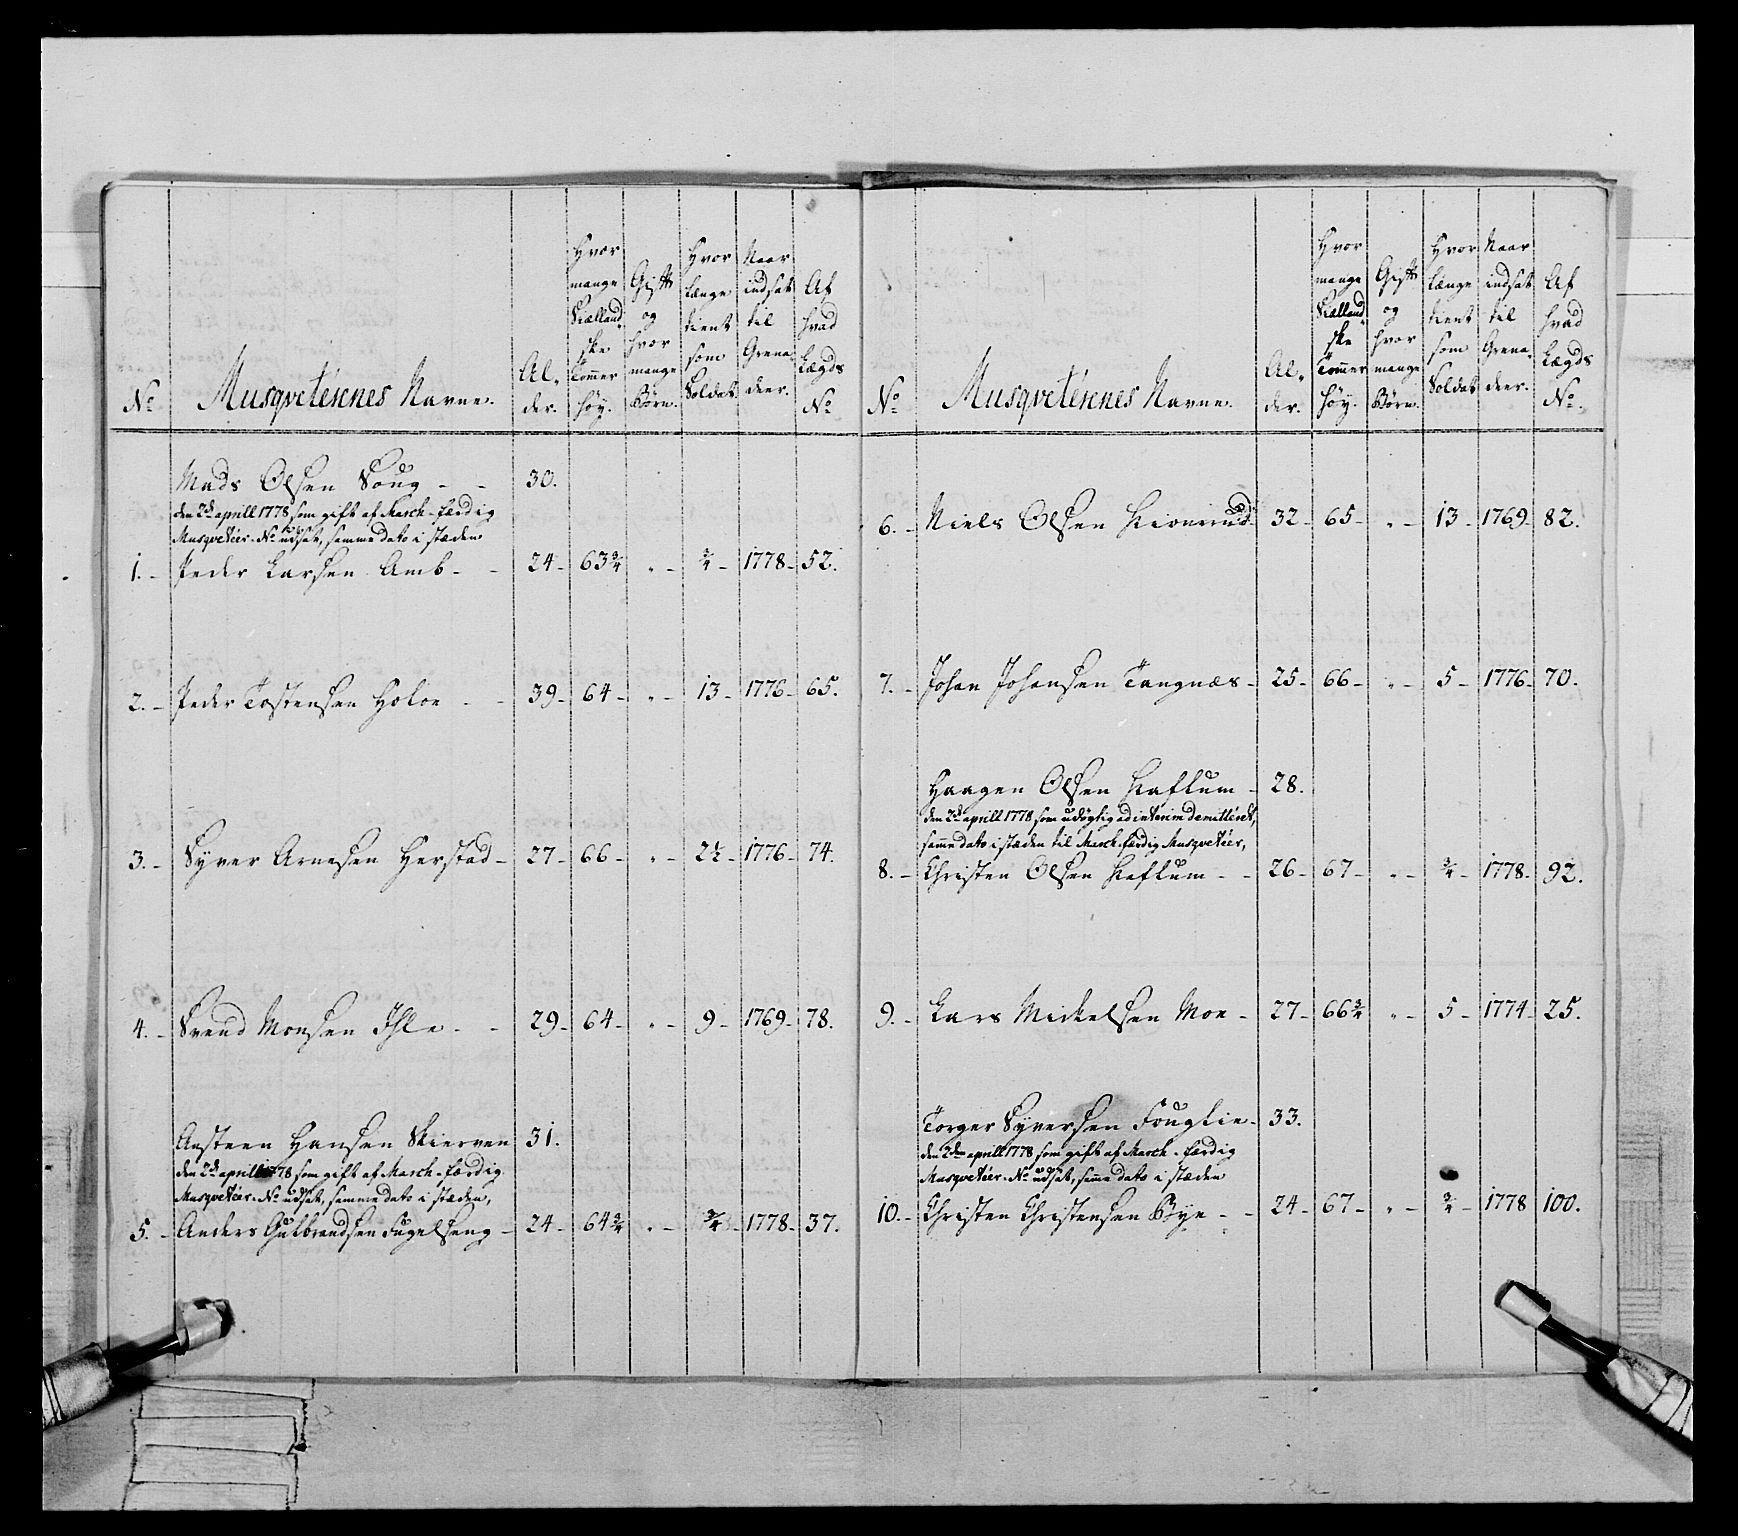 No. Musqvetérernes Navne. Al- der. Hvor mange Siælland- ske Tommer høy. Gift og hvor mange Børn. Hvor længe tient som Soldat. Naar indsat til Grena- deer. Af hvad Lægds No.
Mads Olsen Soug - - 30.
den 2de aprill 1778 som gift af March-færdig
Musqveteer-No. udsat, samme dato i stæden
1. - Peder Larsen Amb - - 24 - 63 3/4 " - 3/4 - 1778 - 52.
2. - Peder Tostensen Holoe - - 39 - 64 - " - 13 - 1776 - 65.
3. - Syver Arnesen Herstad - 27 - 66 - " - 2 1/2 - 1776 - 74.
4. - Svend Monsen Ihle - - 29 - 64 - " - 9 - 1769 - 78.
Aasteen Hansen Skierven 31.
den 2de aprill 1778 som gift af March-færdig
Musqveteer-No. udsat, samme dato i stæden,
5. - Anders Gulbrandsen Fugelseng - 24 - 64 3/4 " - 3/4 - 1778 - 37.
No. Musqvetérernes Navne. Al- der. Hvor mange Siælland- ske Tommer høy. Gift og hvor mange Børn. Hvor længe tient som Soldat. Naar indsat til Grena- deer. Af hvad Lægds No.
6. - Niels Olsen 32 - 65 - " - 13 - 1769 - 82.
7. - Johan Johansen Tangnæs - 25 - 66 - " - 5 - 1776 - 70.
Haagen Olsen Haflum - 28.
den 2de aprill 1778 som udøgtig ad interim demitteret,
samme dato i stæden til March-færdig Musqveteer,
8. - Christen Olsen Haflum - - 26 - 67 - " - 3/4 - 1778 - 92.
9. - Lars Mickelsen Moe - 27 - 66 3/4 " - 5 - 1774 - 25.
Torger Syversen Fouglie - 33.
den 2den aprill 1778 som gift af March-færdig
Musqveteer-No. udsat, samme dato i stæden
10. - Christen Christensen Bye - - 24 - 67 - " - 3/4 - 1778 100.